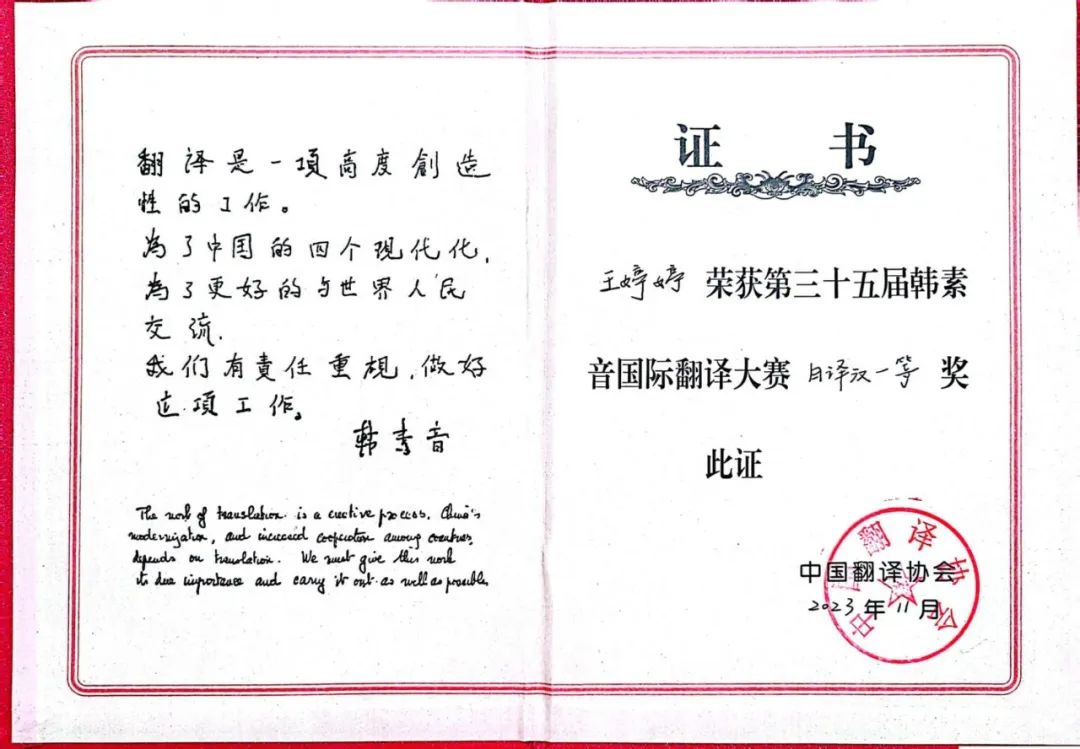 翻译是一項高度創造
性的工作。
為了中国的四个现代化,
為了更好的与世界人民
交流.
我们有責任重視,做好
这项工作。
韩素音
The work of translation is a creative process. China's
modernization, and increased cooperation among countries,
depends on translation. We must give this work
its due importance and carry it out as well as possible.
证书
王婷婷 荣获第三十五届韩素
音国际翻译大赛 日译汉一等 奖
此证
中国翻译协会
2023年11月
中国翻译协会